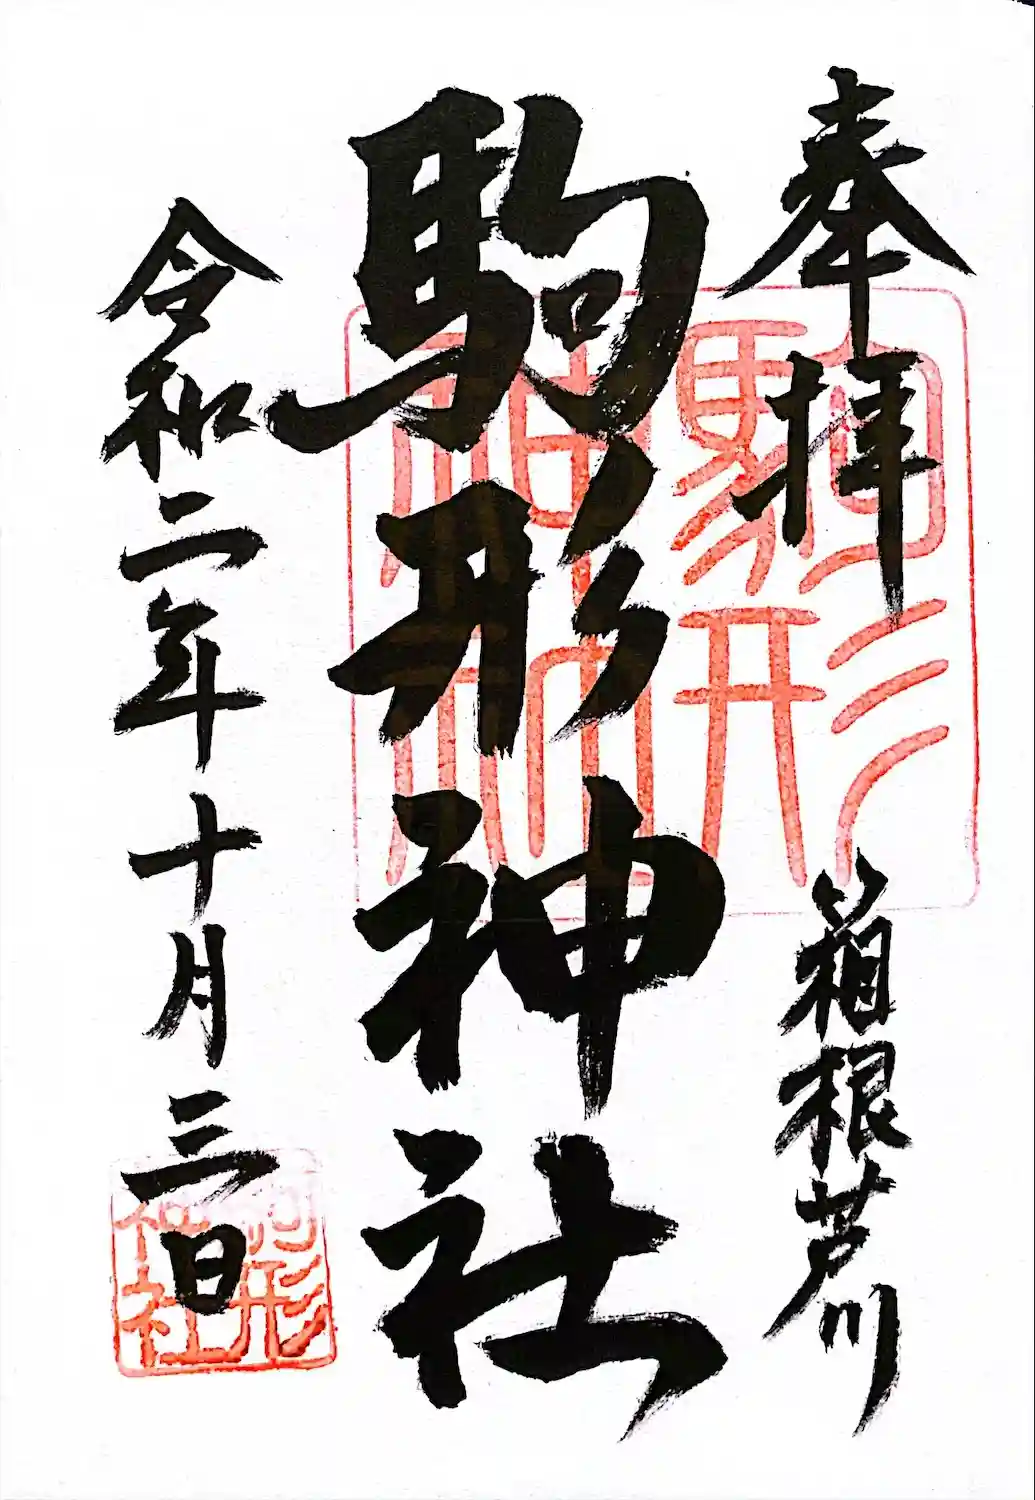 奉拝
箱根芦川
駒形神社
令和二年十月三日
駒形
神社